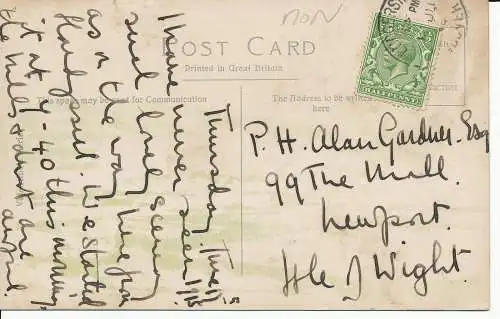 non
POST CARD
Printed in Great Britain
This space may be used for Communication
The Address to be written here
HALFPENNY
PM
P. H. Alan Gardner. Esq
99 The Mall.
Newport.
Isle of Wight.
Thursday June
I have never seen
such lovely scenery
as on the way here from
Hindhead. We started
it at 9-40 this morning,
the hills & dust are
awful.